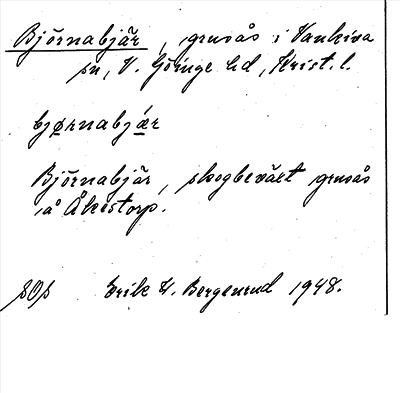 Björnabjär, grusås i Vankiva
sn, V. Göinge hd, Krist. l.
bjørnabjær
Björnabjär, skogbeväxt grusås
å Åkestorp.
Erik H. Bergenrud 1948.